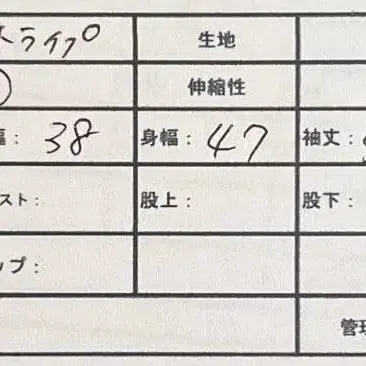 トライプ 生地
伸縮性
幅: 38 身幅: 47 袖丈:
スト: 股上: 股下:
ップ:
管理